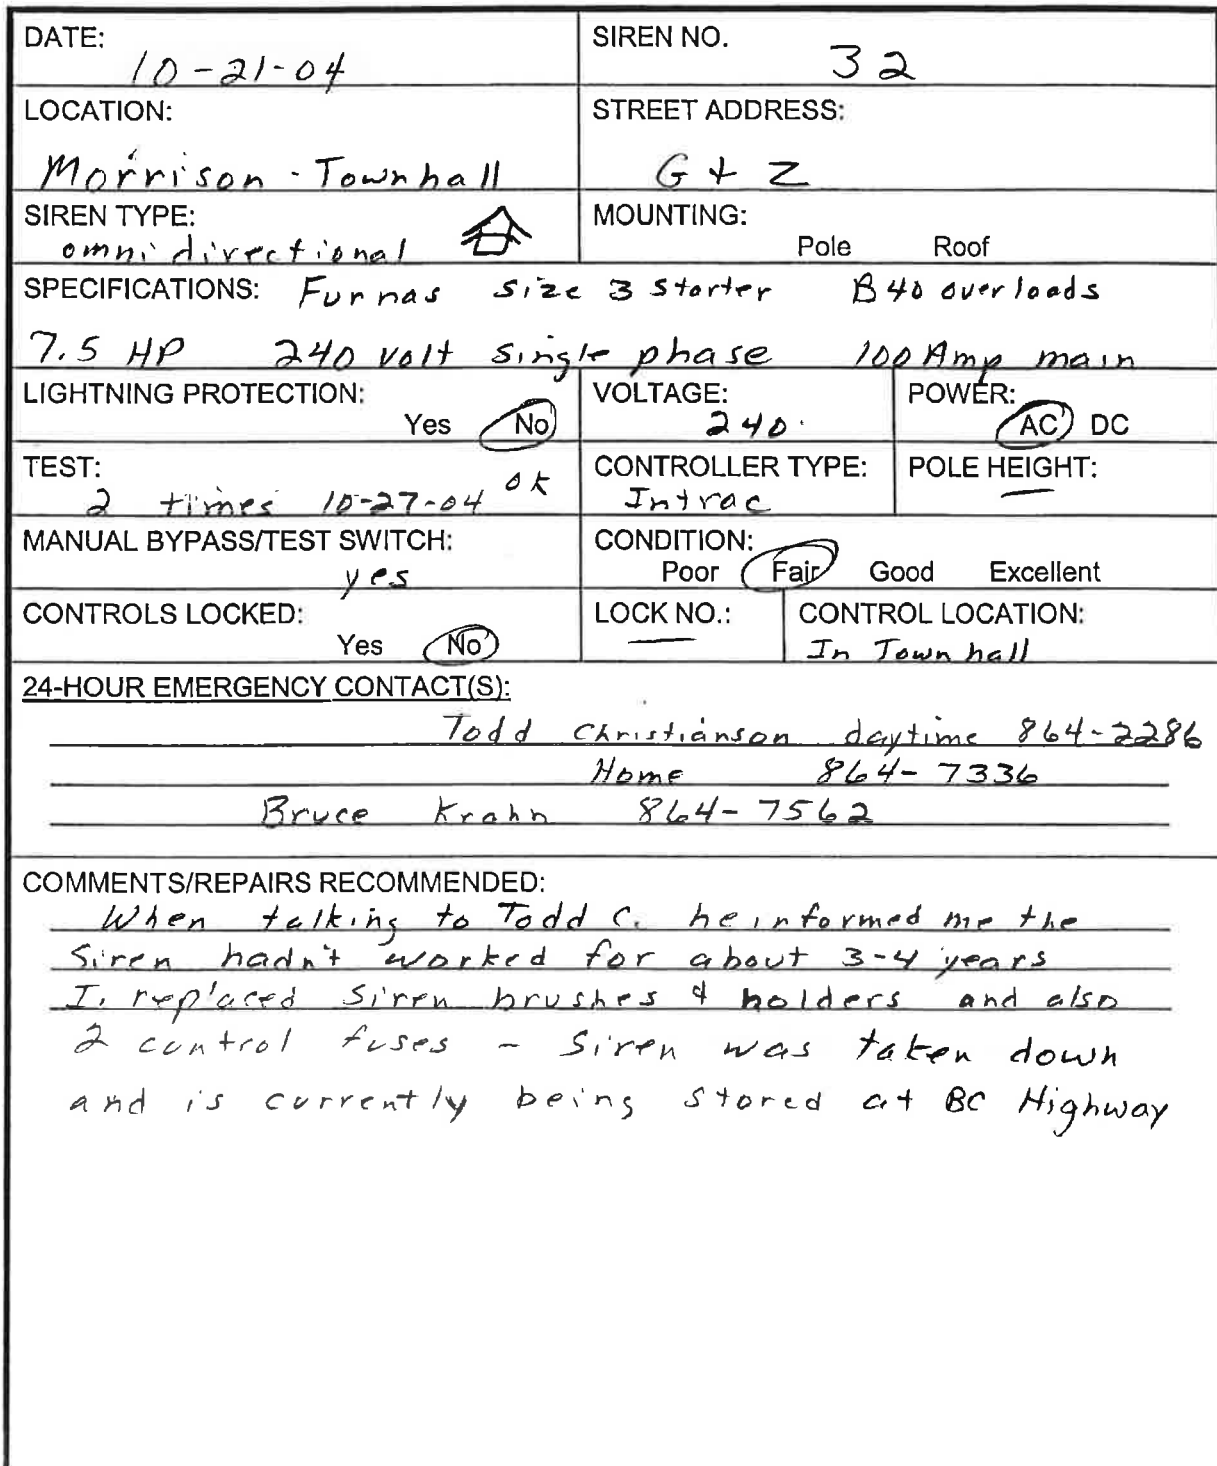 DATE: 10-21-04
SIREN NO. 32
LOCATION: Morrison - Townhall
STREET ADDRESS: G + Z
SIREN TYPE: omnidirectional
MOUNTING: Pole Roof
SPECIFICATIONS: Furnas Size 3 Starter B40 overloads
7.5 HP 240 volt single phase 100 Amp main
LIGHTNING PROTECTION: Yes No
VOLTAGE: 240
POWER: AC DC
TEST: 2 times 10-27-04 ok
CONTROLLER TYPE: Intrac
POLE HEIGHT: —
MANUAL BYPASS/TEST SWITCH: yes
CONDITION: Poor Fair Good Excellent
CONTROLS LOCKED: Yes No
LOCK NO.: —
CONTROL LOCATION: In Townhall
24-HOUR EMERGENCY CONTACT(S):
Todd Christianson daytime 864-2286
Home 864-7336
Bruce Krahn 864-7562
COMMENTS/REPAIRS RECOMMENDED:
When talking to Todd C. he informed me the
Siren hadn't worked for about 3-4 years
I. replaced Siren brushes & holders and also
2 control fuses - Siren was taken down
and is currently being stored at BC Highway